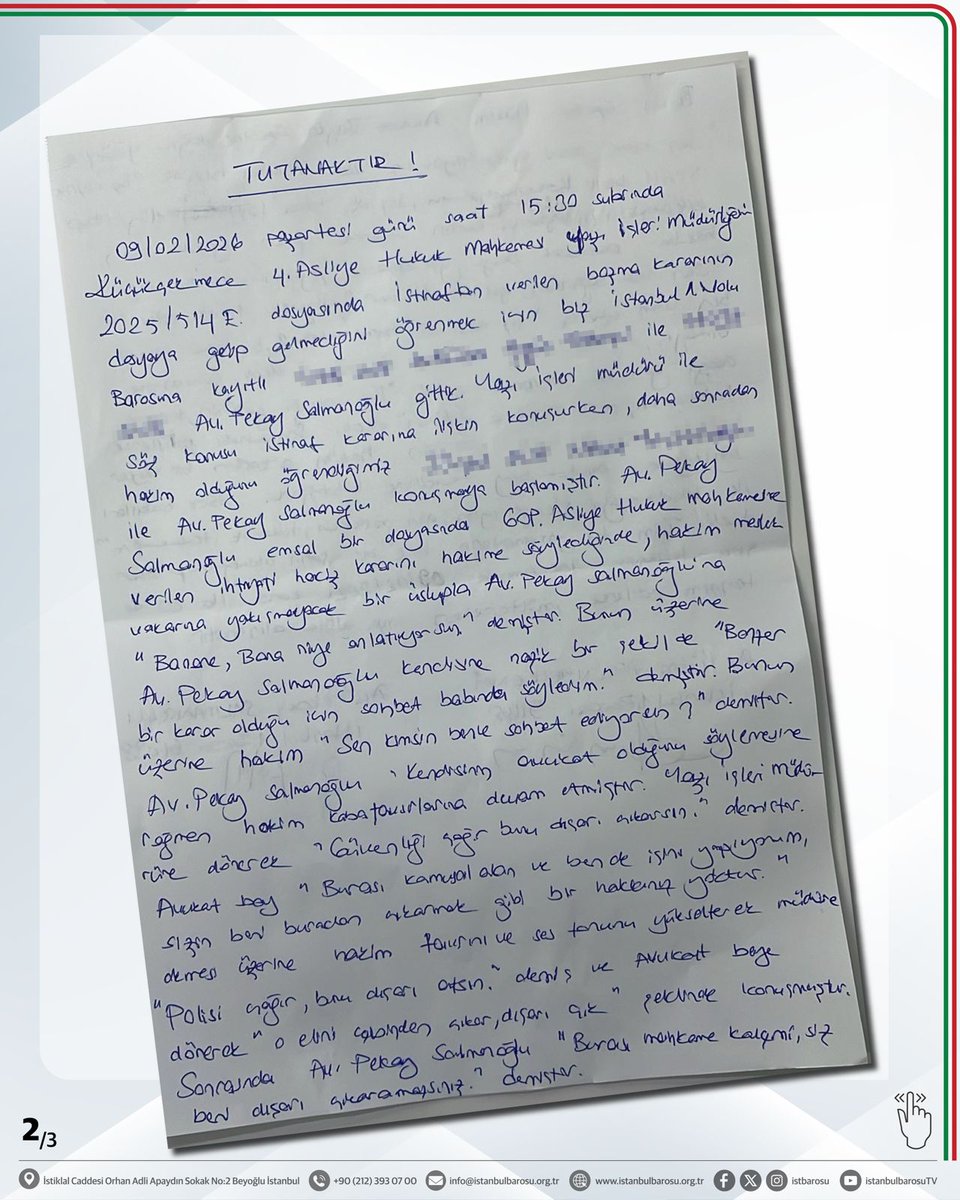 TUTANAKTIR !
09/02/2026 pazartesi günü saat 15:30 sularında
Küçükçekmece 4. Asliye Hukuk Mahkemesi yazı işleri müdürlüğünün
2025/514 E. dosyasında istinaftan verilen bozma kararının
dosyaya gelip gelmediğini öğrenmek için biz İstanbul 1 Nolu
Barosuna kayıtlı ile
Av. Pekay Salmanoğlu gittik. Yazı işleri müdürü ile
söz konusu istinaf kararına ilişkin konuşurken, daha sonradan
hakim olduğunu öğrendiğimiz
ile Av. Pekay Salmanoğlu konuşmaya başlamıştır. Av. Pekay
Salmanoğlu emsal bir dosyasında GOP. Asliye Hukuk mahkemesine
verilen ihtiyati haciz kararını hakime söylediğinde, hakim meslek
vakarına yakışmayacak bir üslupla Av. Pekay Salmanoğlu'na
"Banane, Bana niye anlatıyorsun" demiştir. Bunun üzerine
Av. Pekay Salmanoğlu kendisine nazik bir şekilde "Benzer
bir karar olduğu için sohbet babında söyledim." demiştir. Bunun
üzerine hakim "Sen kimsin benle sohbet ediyorsun?" demiştir.
Av. Pekay Salmanoğlu kendisinin avukat olduğunu söylemesine
rağmen hakim kaba tavırlarına devam etmiştir. Yazı işleri müdü-
rüne dönerek "Güvenliği çağır bunu dışarı çıkarsın." demiştir.
Avukat bey "Burası kamusal alan ve ben de işimi yapıyorum,
sizin beni buradan çıkarmak gibi bir hakkınız yoktur."
demesi üzerine hakim tavrını ve ses tonunu yükselterek müdüre
"Polisi çağır, bunu dışarı atsın." demiş ve Avukat beye
dönerek "o elini cebinden çıkar, dışarı çık" şeklinde konuşmuştur.
Sonrasında Av. Pekay Salmanoğlu "Burası mahkeme kalemi, siz
beni dışarı çıkaramazsınız." demiştir.
2/3
İstiklal Caddesi Orhan Adli Apaydın Sokak No:2 Beyoğlu İstanbul +90 (212) 393 07 00 info@istanbulbarosu.org.tr www.istanbulbarosu.org.tr istbarosu istanbulbarosuTV